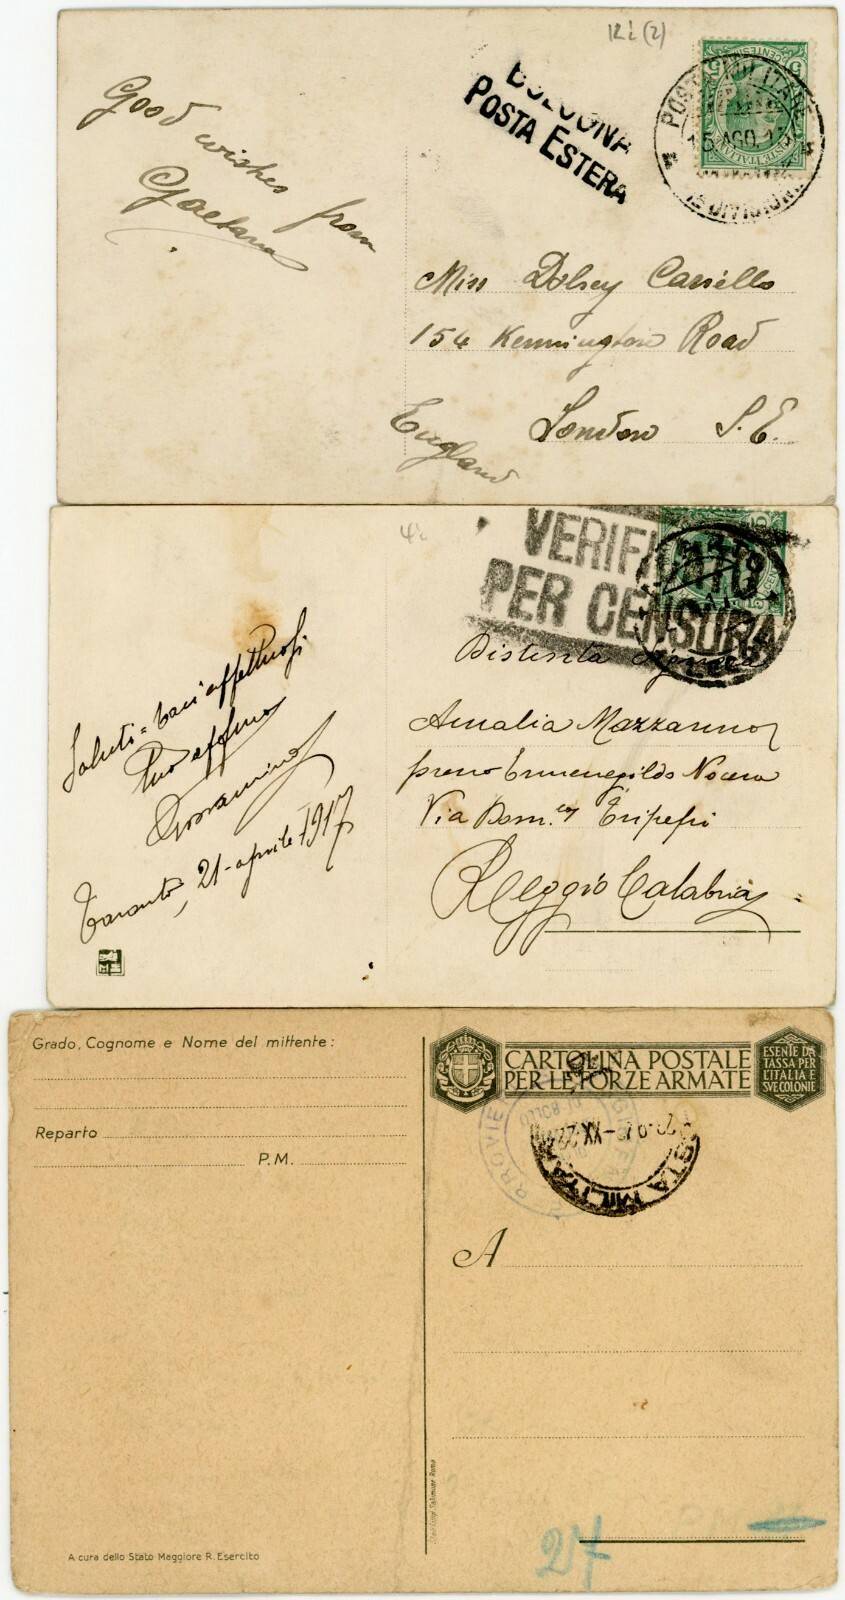 12i (2)
BOLOGNA
POSTA ESTERA
POSTA MILITARE
15 AGO. 15
DIVISIONE
Good wishes from
Gaetano
Miss Dolsey Cariello
154 Kennington Road
London S.E.
England
4i
VERIFICATO
PER CENSURA
Saluti = baci affettuosi
Tuo affmo
Taranto, 21 - aprile 1917
Distinta Signora
Amalia Mazzarino
presso Ermenegildo Nocera
Via Dom.co Tripepi
Reggio Calabria
Grado, Cognome e Nome del mittente:
Reparto
P.M.
CARTOLINA POSTALE
PER LE FORZE ARMATE
ESENTE DA
TASSA PER
L'ITALIA E
SVE COLONIE
POSTA MILITARE
A
27
A cura dello Stato Maggiore R. Esercito